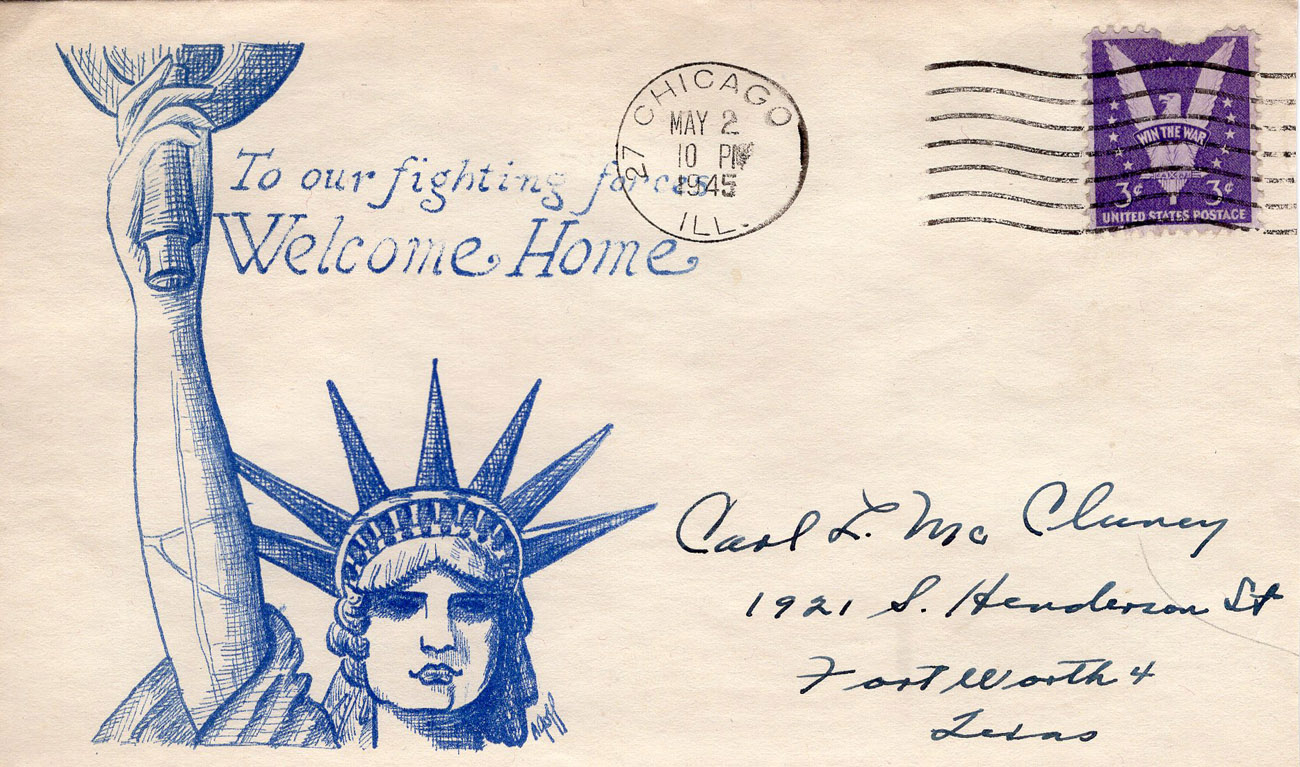 To our fighting forces
Welcome Home
CHICAGO
27
MAY 2
10 PM
1945
ILL.
WIN THE WAR
3¢ 3¢
UNITED STATES POSTAGE
Carl L. Mc Cluney
1921 S. Henderson St
Fort Worth 4
Texas